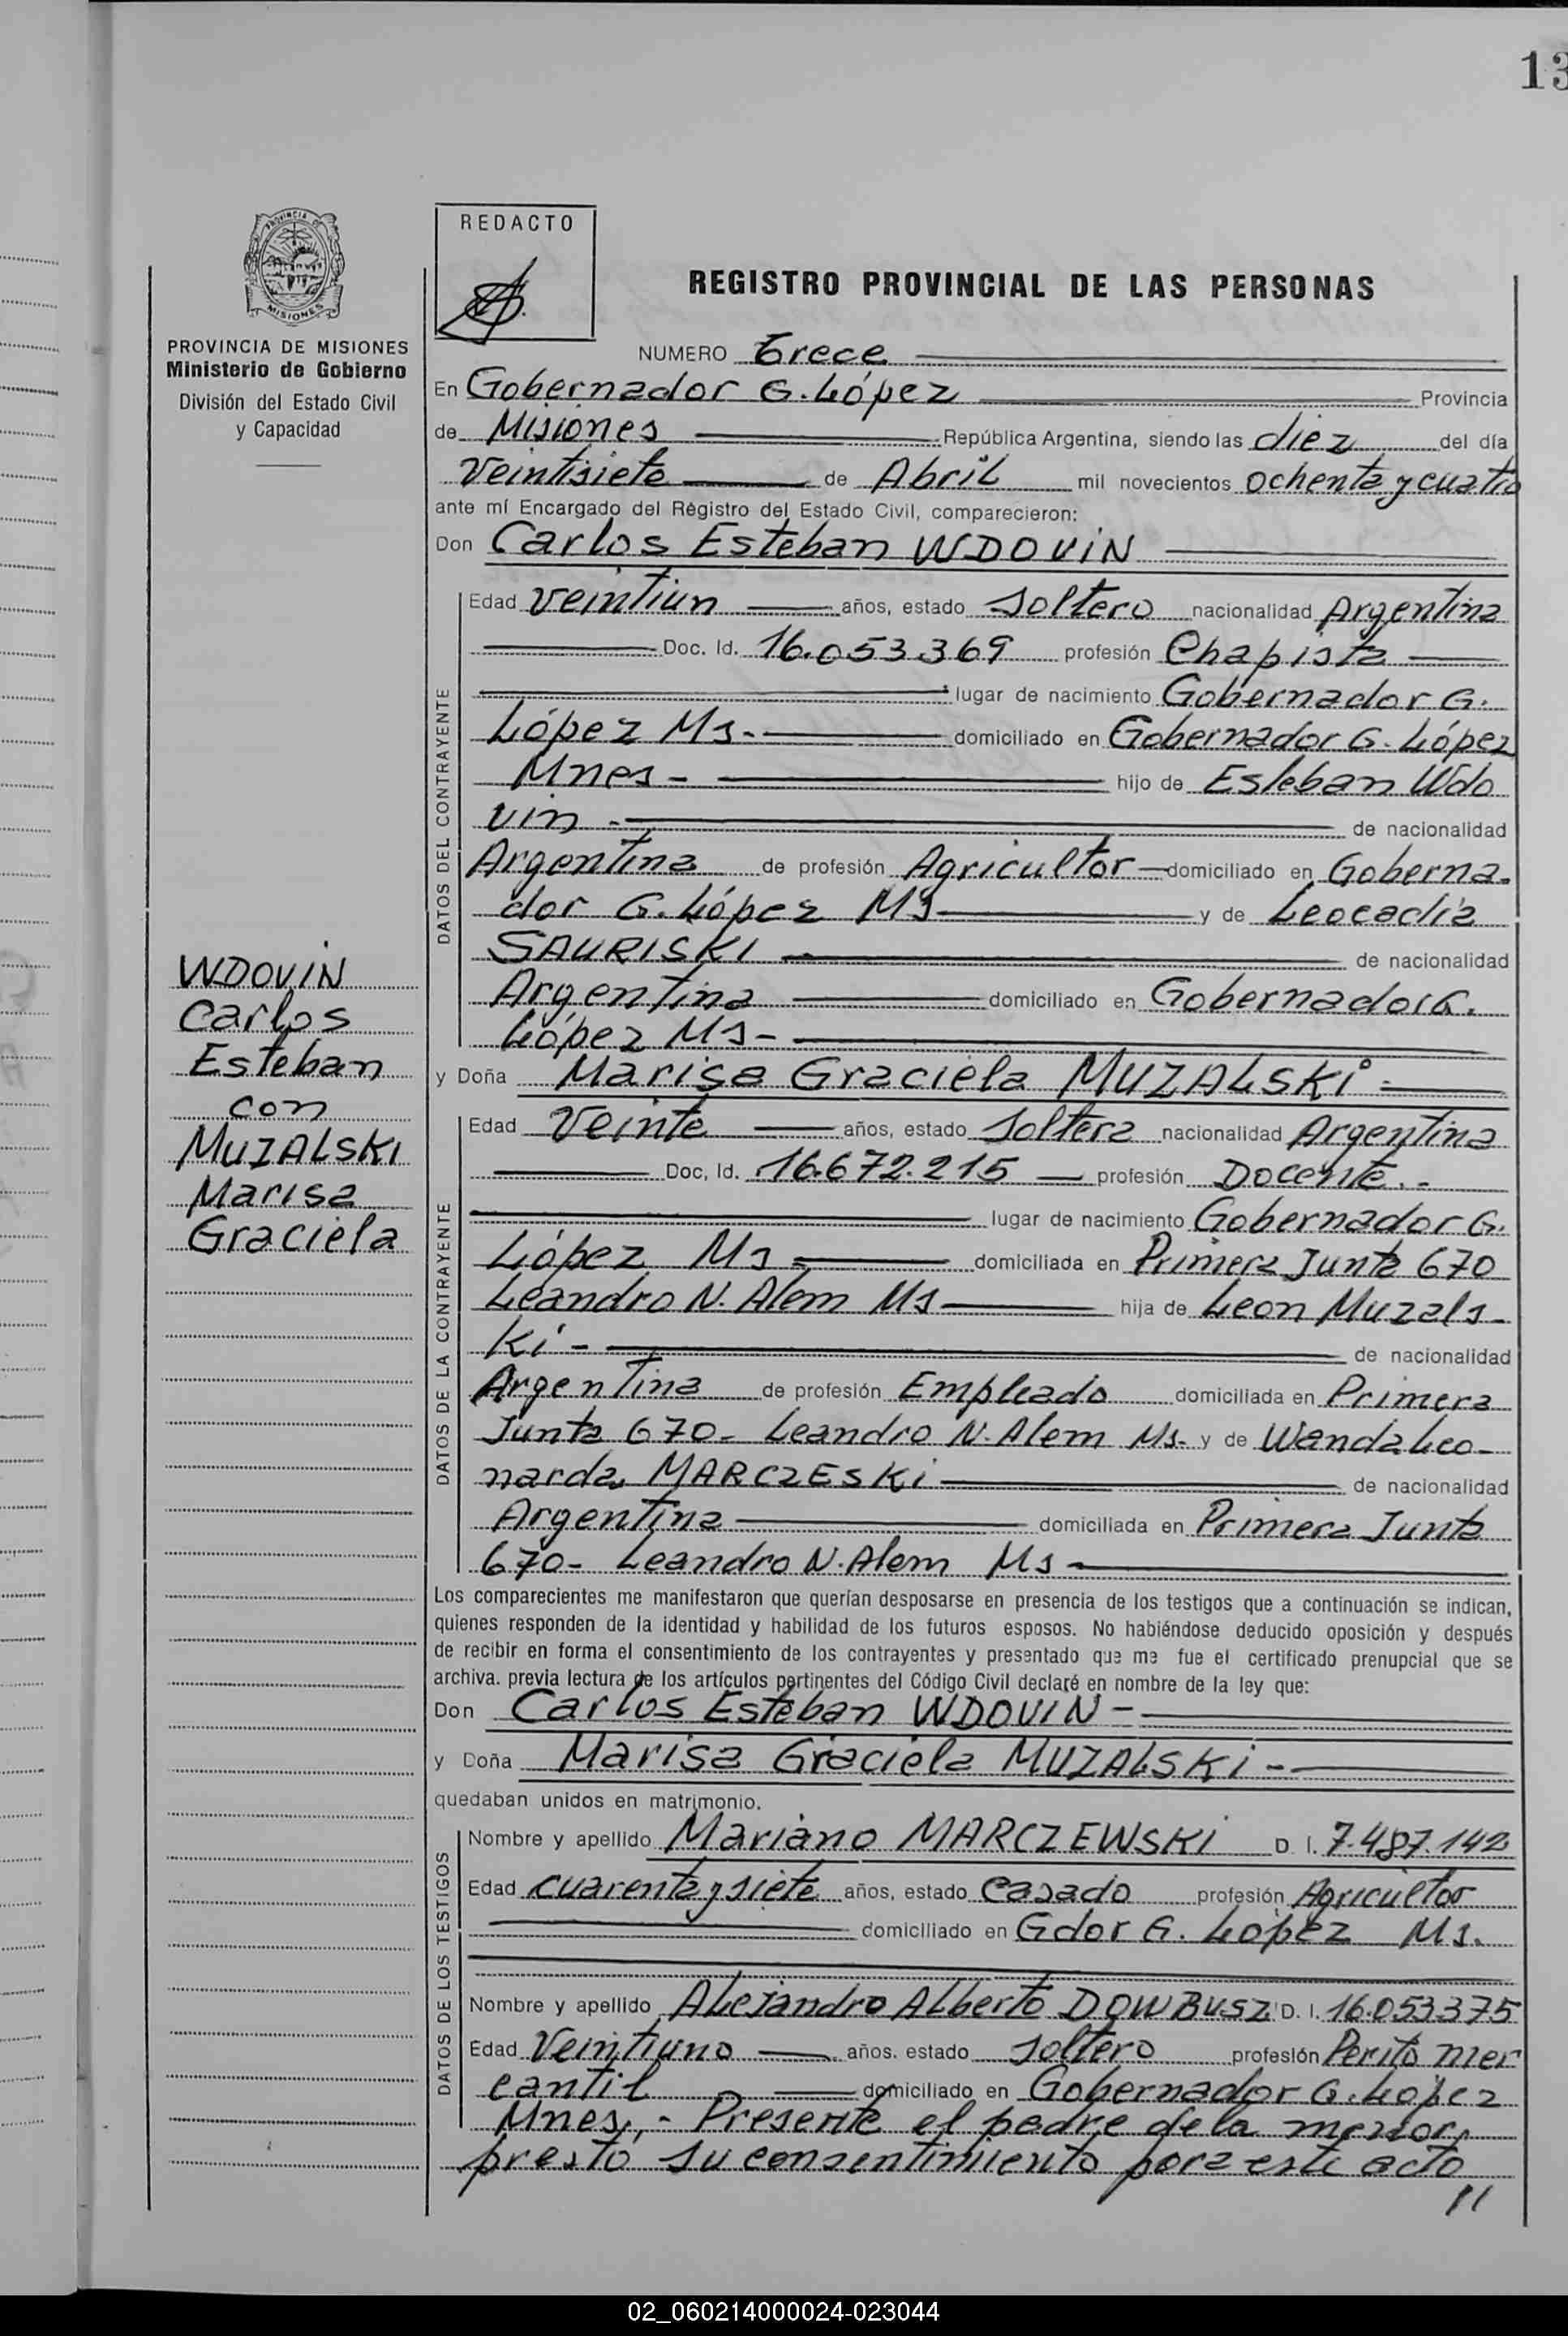 13
PROVINCIA DE
MISIONES
PROVINCIA DE MISIONES
Ministerio de Gobierno
División del Estado Civil
y Capacidad
WDOVIN
Carlos
Esteban
con
MUZALSKI
Marisa
Graciela
REDACTO
REGISTRO PROVINCIAL DE LAS PERSONAS
NUMERO Trece
En Gobernador G. López Provincia
de Misiones República Argentina, siendo las diez del día
Veintisiete de Abril mil novecientos ochenta y cuatro
ante mí Encargado del Règistro del Estado Civil, comparecieron:
Don Carlos Esteban WDOVIN
DATOS DEL CONTRAYENTE
Edad veintiun años, estado soltero nacionalidad Argentina
Doc. Id. 16.053.369 profesión Chapista
lugar de nacimiento Gobernador G.
López Ms.- domiciliado en Gobernador G. López
Mnes- hijo de Esteban Wdo
vin - de nacionalidad
Argentina de profesión Agricultor domiciliado en Goberna-
dor G. López Ms y de Leocadia
SAURISKI de nacionalidad
Argentina domiciliado en Gobernador G.
López Ms-
y Doña Marisa Graciela MUZALSKI -
DATOS DE LA CONTRAYENTE
Edad Veinte años, estado soltera nacionalidad Argentina
Doc, Id. 16.672.215 profesión Docente.-
lugar de nacimiento Gobernador G.
López Ms domiciliada en Primera Junta 670
Leandro N. Alem Ms hija de Leon Muzals-
ki - de nacionalidad
Argentina de profesión Empleado domiciliada en Primera
Junta 670- Leandro N. Alem Ms- y de Wanda Leo-
narda MARCZESKI de nacionalidad
Argentina domiciliada en Primera Junta
670- Leandro N. Alem Ms-
Los comparecientes me manifestaron que querían desposarse en presencia de los testigos que a continuación se indican,
quienes responden de la identidad y habilidad de los futuros esposos. No habiéndose deducido oposición y después
de recibir en forma el consentimiento de los contrayentes y presentado que me fue el certificado prenupcial que se
archiva. previa lectura de los artículos pertinentes del Código Civil declaré en nombre de la ley que:
Don Carlos Esteban WDOVIN -
y Doña Marisa Graciela MUZALSKI -
quedaban unidos en matrimonio.
DATOS DE LOS TESTIGOS
Nombre y apellido Mariano MARCZEWSKI D. I. 7.487.142
Edad cuarenta y siete años, estado casado profesión Agricultor
domiciliado en Gdor G. López Ms.
Nombre y apellido Alejandro Alberto DOWBUSZ D. I. 16.053375
Edad Veintiuno años. estado soltero profesión Perito mer
cantil domiciliado en Gobernador G. López
Mnes.- Presente el padre de la menor,
prestó su consentimiento para este acto
//
02_060214000024-023044